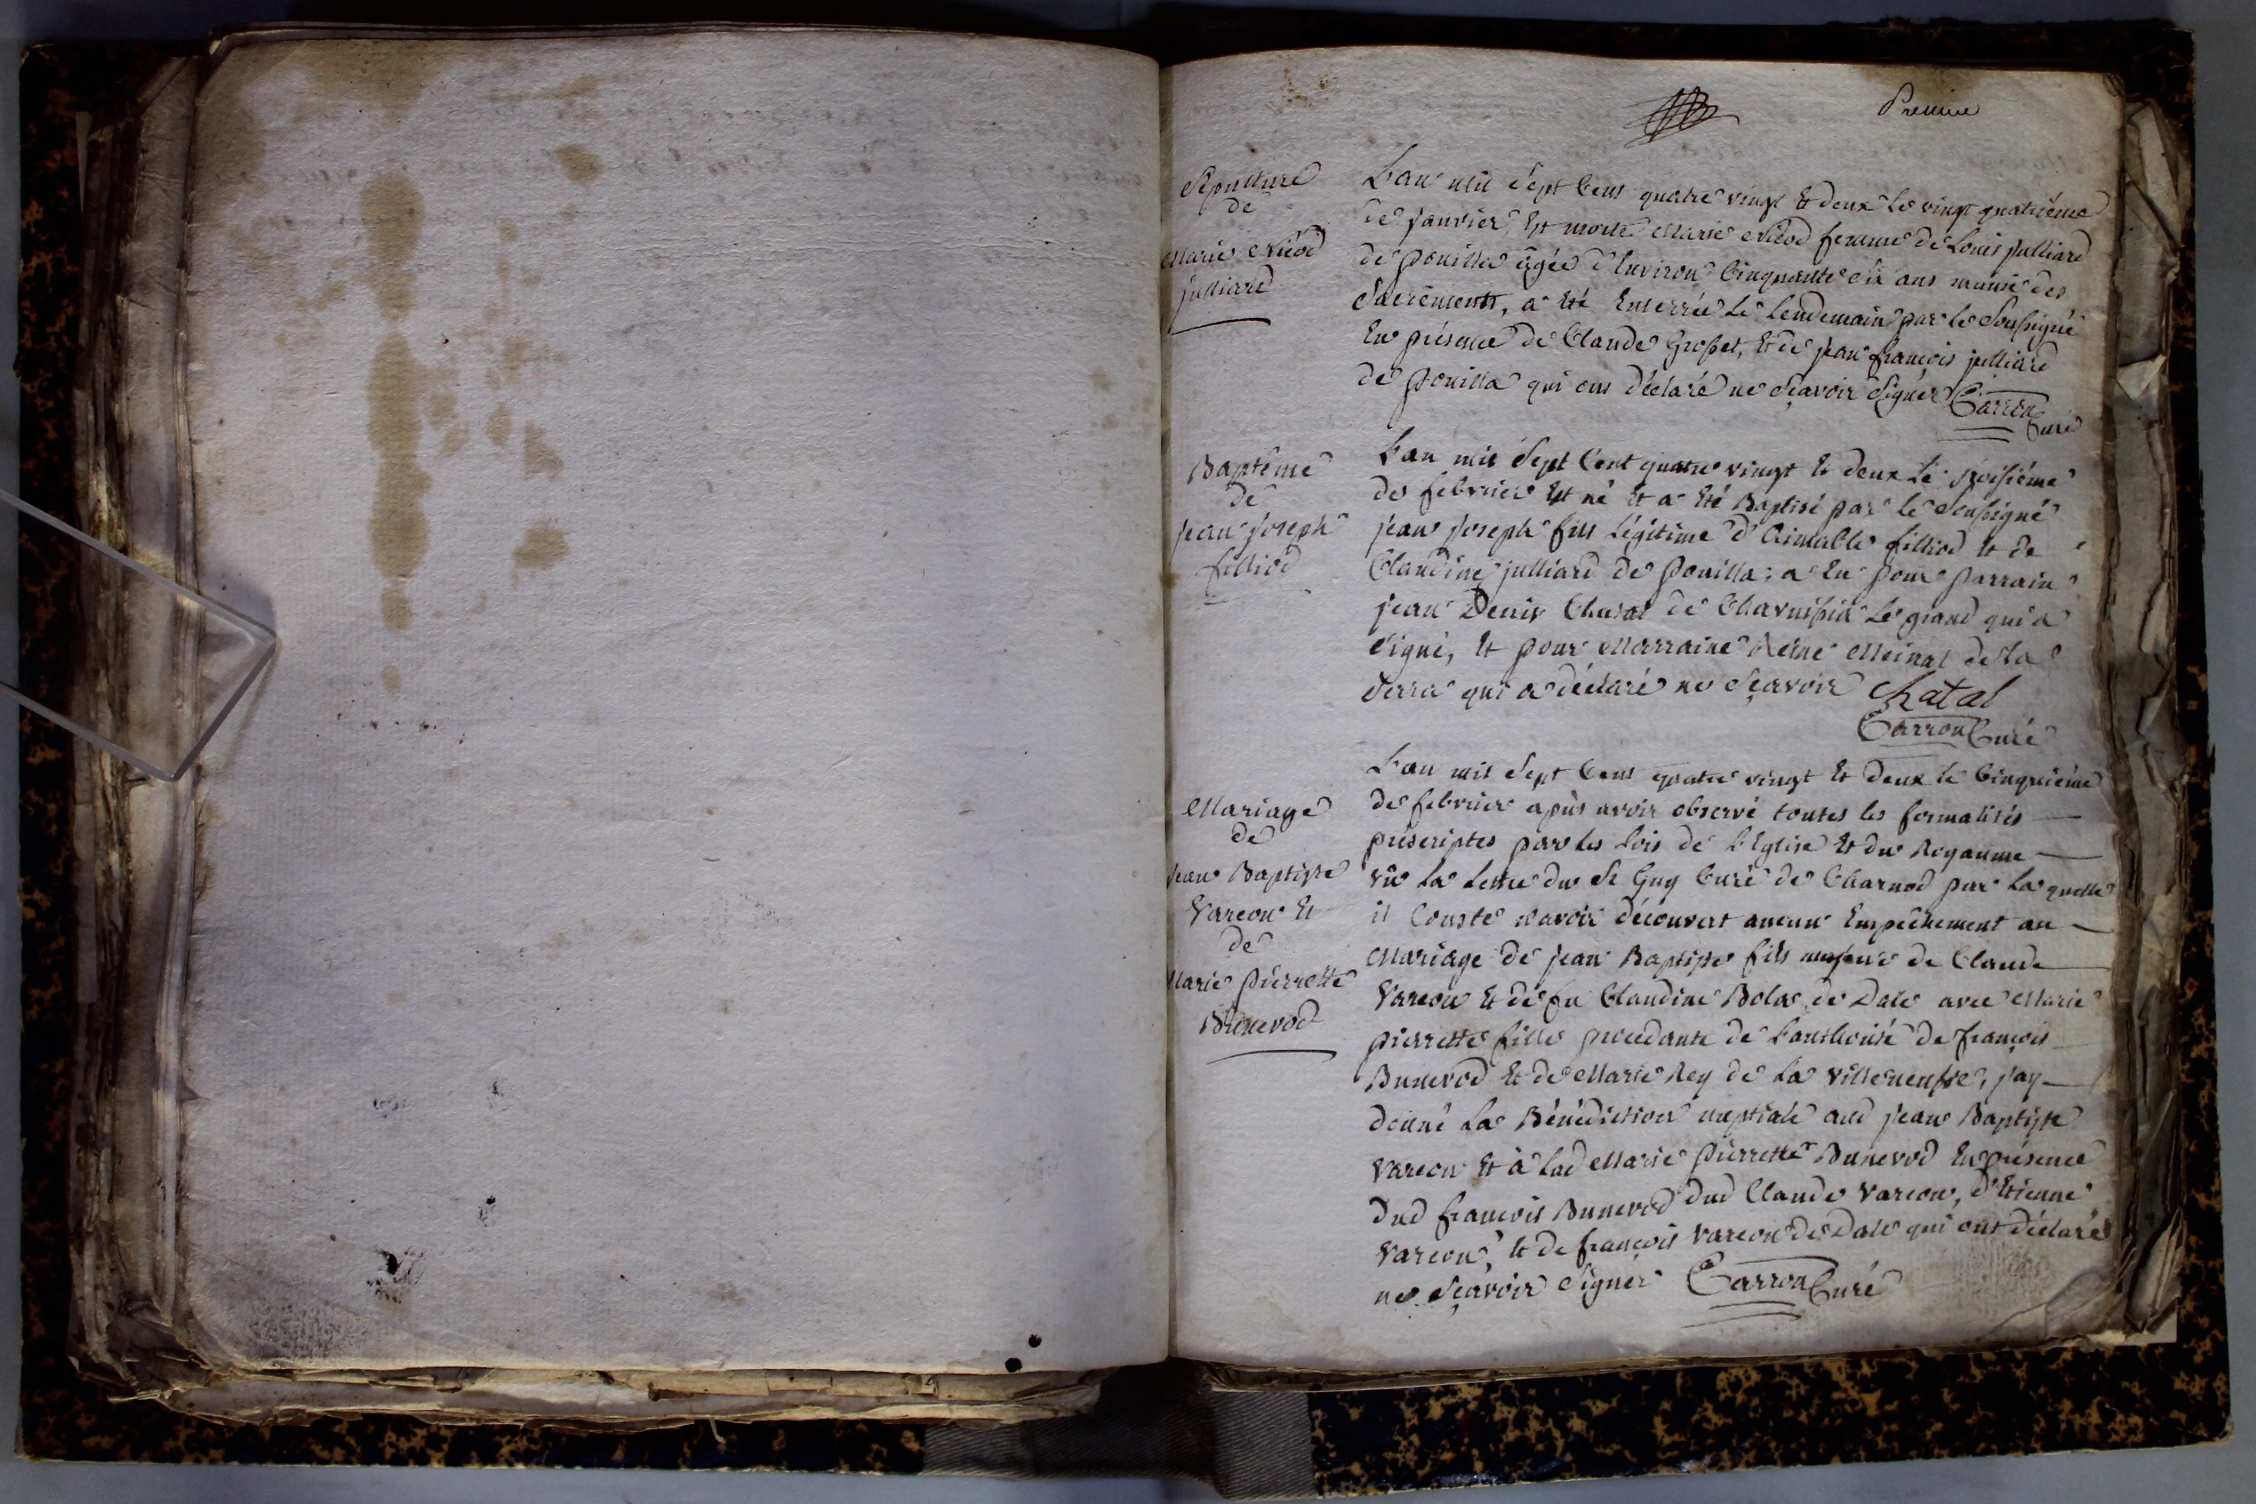 Premiere
Sepulture
de
Marie Nicod
julliard
L'an mil Sept Cent quatre vingt Et deux Le vingt quatriéme
de janvier, Est morte Marie Nicod femme de Louis julliard
de pouilla âgée d'Environ Cinquante Six ans munie des
Sacréments, a Eté Enterrée Le Lendemain par le Soussigné
En présence de Claude Grosset, Et de jean françois julliard
de pouilla qui ont déclaré ne Sçavoir Signer Carron
Curé
Baptême
de
jean joseph
filliod
L'an mil Sept Cent quatre vingt Et deux Le troisiéme
de febvrier Est né Et a Eté Baptisé par le Soussigné
jean joseph fils Légitime d'Aimable filliod Et de
Claudine julliard de pouilla; a Eu pour parrain
jean Denis Chatal de Charnissia Le grand qui a
Signé, Et pour Marraine Reine Meinal de La
Serra qui a déclaré ne Sçavoir Chatal
Carron Curé
Mariage
de
jean Baptiste
Varcon Et
de
Marie pierrette
Bunevod
L'an mil Sept Cent quatre vingt Et deux le Cinquiéme
de febvrier après avoir observé toutes les formalités
préscriptes par les Lois de L'Eglise Et du Royaume
vû La Lettre du Sr Guy Curé de Charnod par La quelle
il Conste n'avoir découvert aucun Empêchement au
Mariage de jean Baptiste fils majeur de Claude
Varcon Et de fu Claudine Bola de Dale avec Marie
pierrette fille procedante de L'authorité de françois
Bunevod Et de Marie Rey de La villeneufve, j'ay
donné La Bénédiction nuptiale aud jean Baptiste
Varcon Et à Lad Marie pierrette Bunevod En présence
dud françois Bunevod dud Claude Varcon, d'Etienne
Varcon, Et de françois Varcon de Dale qui ont déclaré
ne Sçavoir Signer Carron Curé